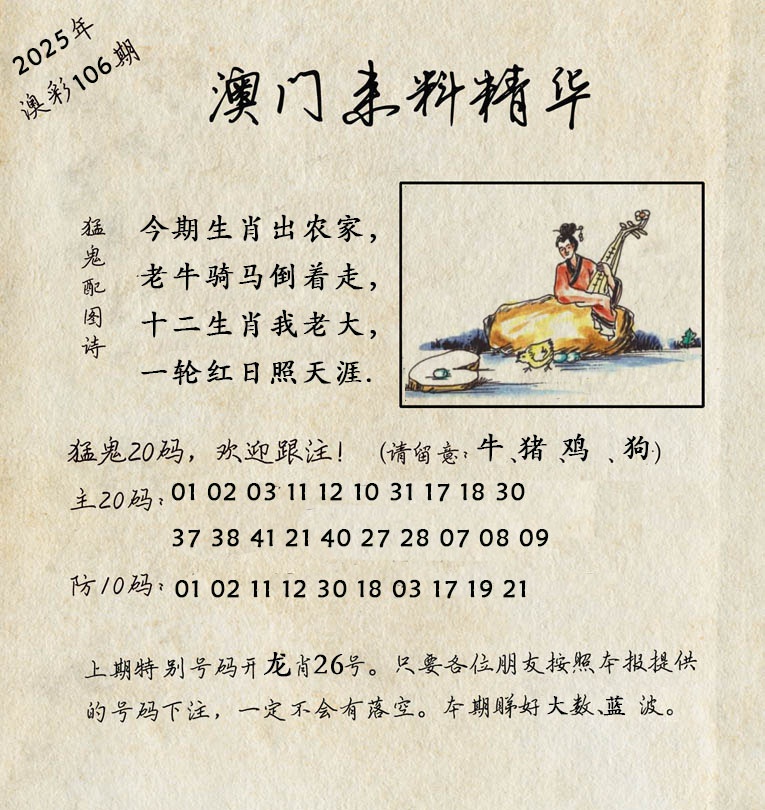 2025年
澳彩106期
澳门来料精华
猛鬼配图诗
今期生肖出农家,
老牛骑马倒着走,
十二生肖我老大,
一轮红日照天涯.
猛鬼20码,欢迎跟注! (请留意:牛、猪、鸡、狗)
主20码: 01 02 03 11 12 10 31 17 18 30
37 38 41 21 40 27 28 07 08 09
防10码: 01 02 11 12 30 18 03 17 19 21
上期特别号码开龙肖26号。只要各位朋友按照本报提供
的号码下注,一定不会有落空。本期睇好大数、蓝波。